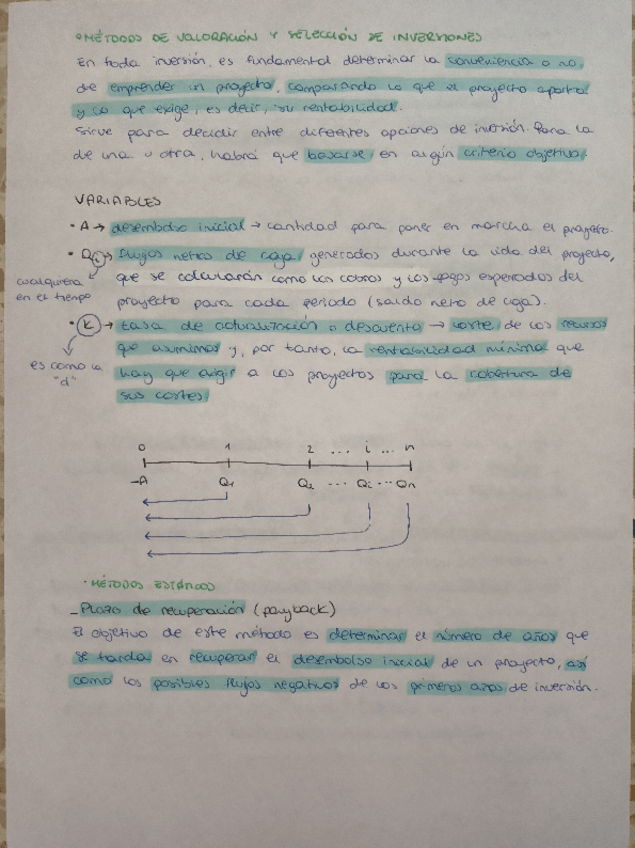 •MÉTODOS DE VALORACIÓN Y SELECCIÓN DE INVERSIONES
En toda inversión, es fundamental determinar la conveniencia o no,
de emprender un proyecto, comparando lo que el proyecto aporta
y lo que exige, es decir, su rentabilidad.
Sirve para decidir entre diferentes opciones de inversión. Para la
de una u otra, habrá que basarse, en algún criterio objetivo.
VARIABLES
• A → desembolso inicial → cantidad para poner en marcha el proyecto.
• Qi → flujos netos de caja, generados durante la vida del proyecto,
que se calcularán como los cobros y los pagos esperados del
cualquiera
en el tiempo
proyecto para cada periodo (saldo neto de caja).
• K → tasa de actualización o descuento → coste, de los recursos
que asumimos y, por tanto, la rentabilidad mínima que
es como la
"d"
hay que exigir a los proyectos para la cobertura de
sus costes.
0 1 2 ... i ... n
-A Q1 Q2 ... Qi ... Qn
• MÉTODOS ESTÁTICOS
- Plazo de recuperación (payback)
El objetivo de este método es determinar el número de años que
se tarda en recuperar el desembolso inicial de un proyecto, así
como los posibles flujos negativos de los primeros años de inversión.